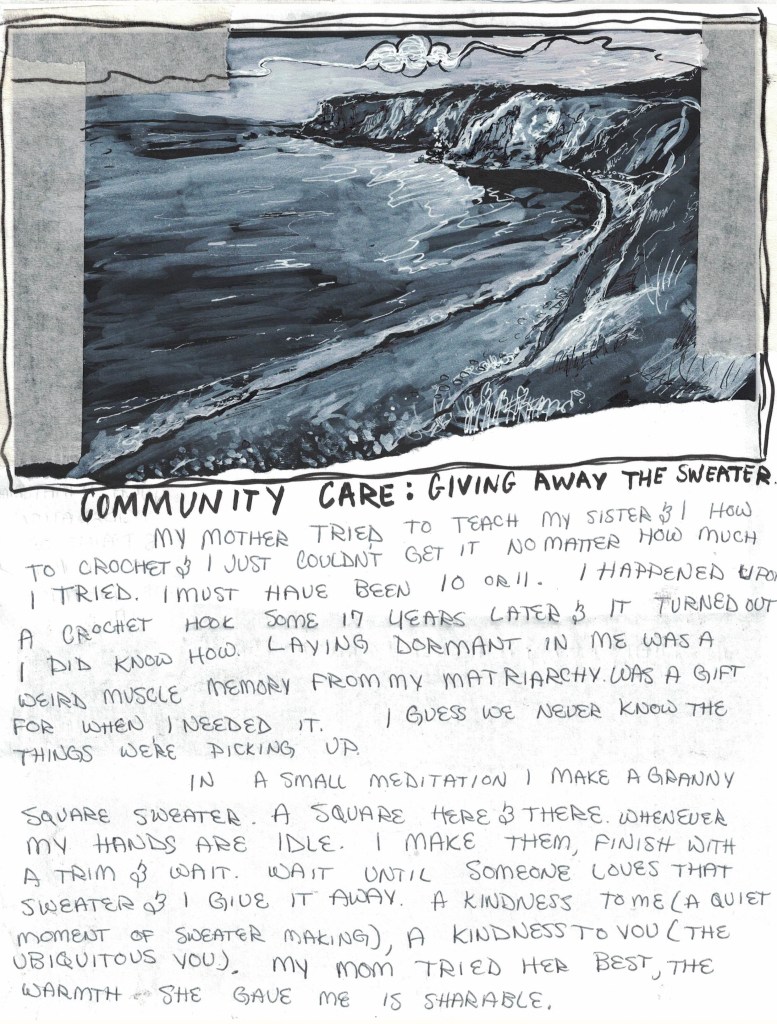 COMMUNITY CARE: GIVING AWAY THE SWEATER.
MY MOTHER TRIED TO TEACH MY SISTER & I HOW
TO CROCHET & I JUST COULDN'T GET IT NO MATTER HOW MUCH
I TRIED. I MUST HAVE BEEN 10 OR 11. I HAPPENED UPON
A CROCHET HOOK SOME 17 YEARS LATER & IT TURNED OUT
I DID KNOW HOW. LAYING DORMANT. IN ME WAS A
WEIRD MUSCLE MEMORY FROM MY MATRIARCHY. WAS A GIFT
FOR WHEN I NEEDED IT. I GUESS WE NEVER KNOW THE
THINGS WE'RE PICKING UP.
IN A SMALL MEDITATION I MAKE A GRANNY
SQUARE SWEATER. A SQUARE HERE & THERE. WHENEVER
MY HANDS ARE IDLE. I MAKE THEM, FINISH WITH
A TRIM & WAIT. WAIT UNTIL SOMEONE LOVES THAT
SWEATER & I GIVE IT AWAY. A KINDNESS TO ME (A QUIET
MOMENT OF SWEATER MAKING), A KINDNESS TO YOU (THE
UBIQUITOUS YOU). MY MOM TRIED HER BEST, THE
WARMTH SHE GAVE ME IS SHARABLE.